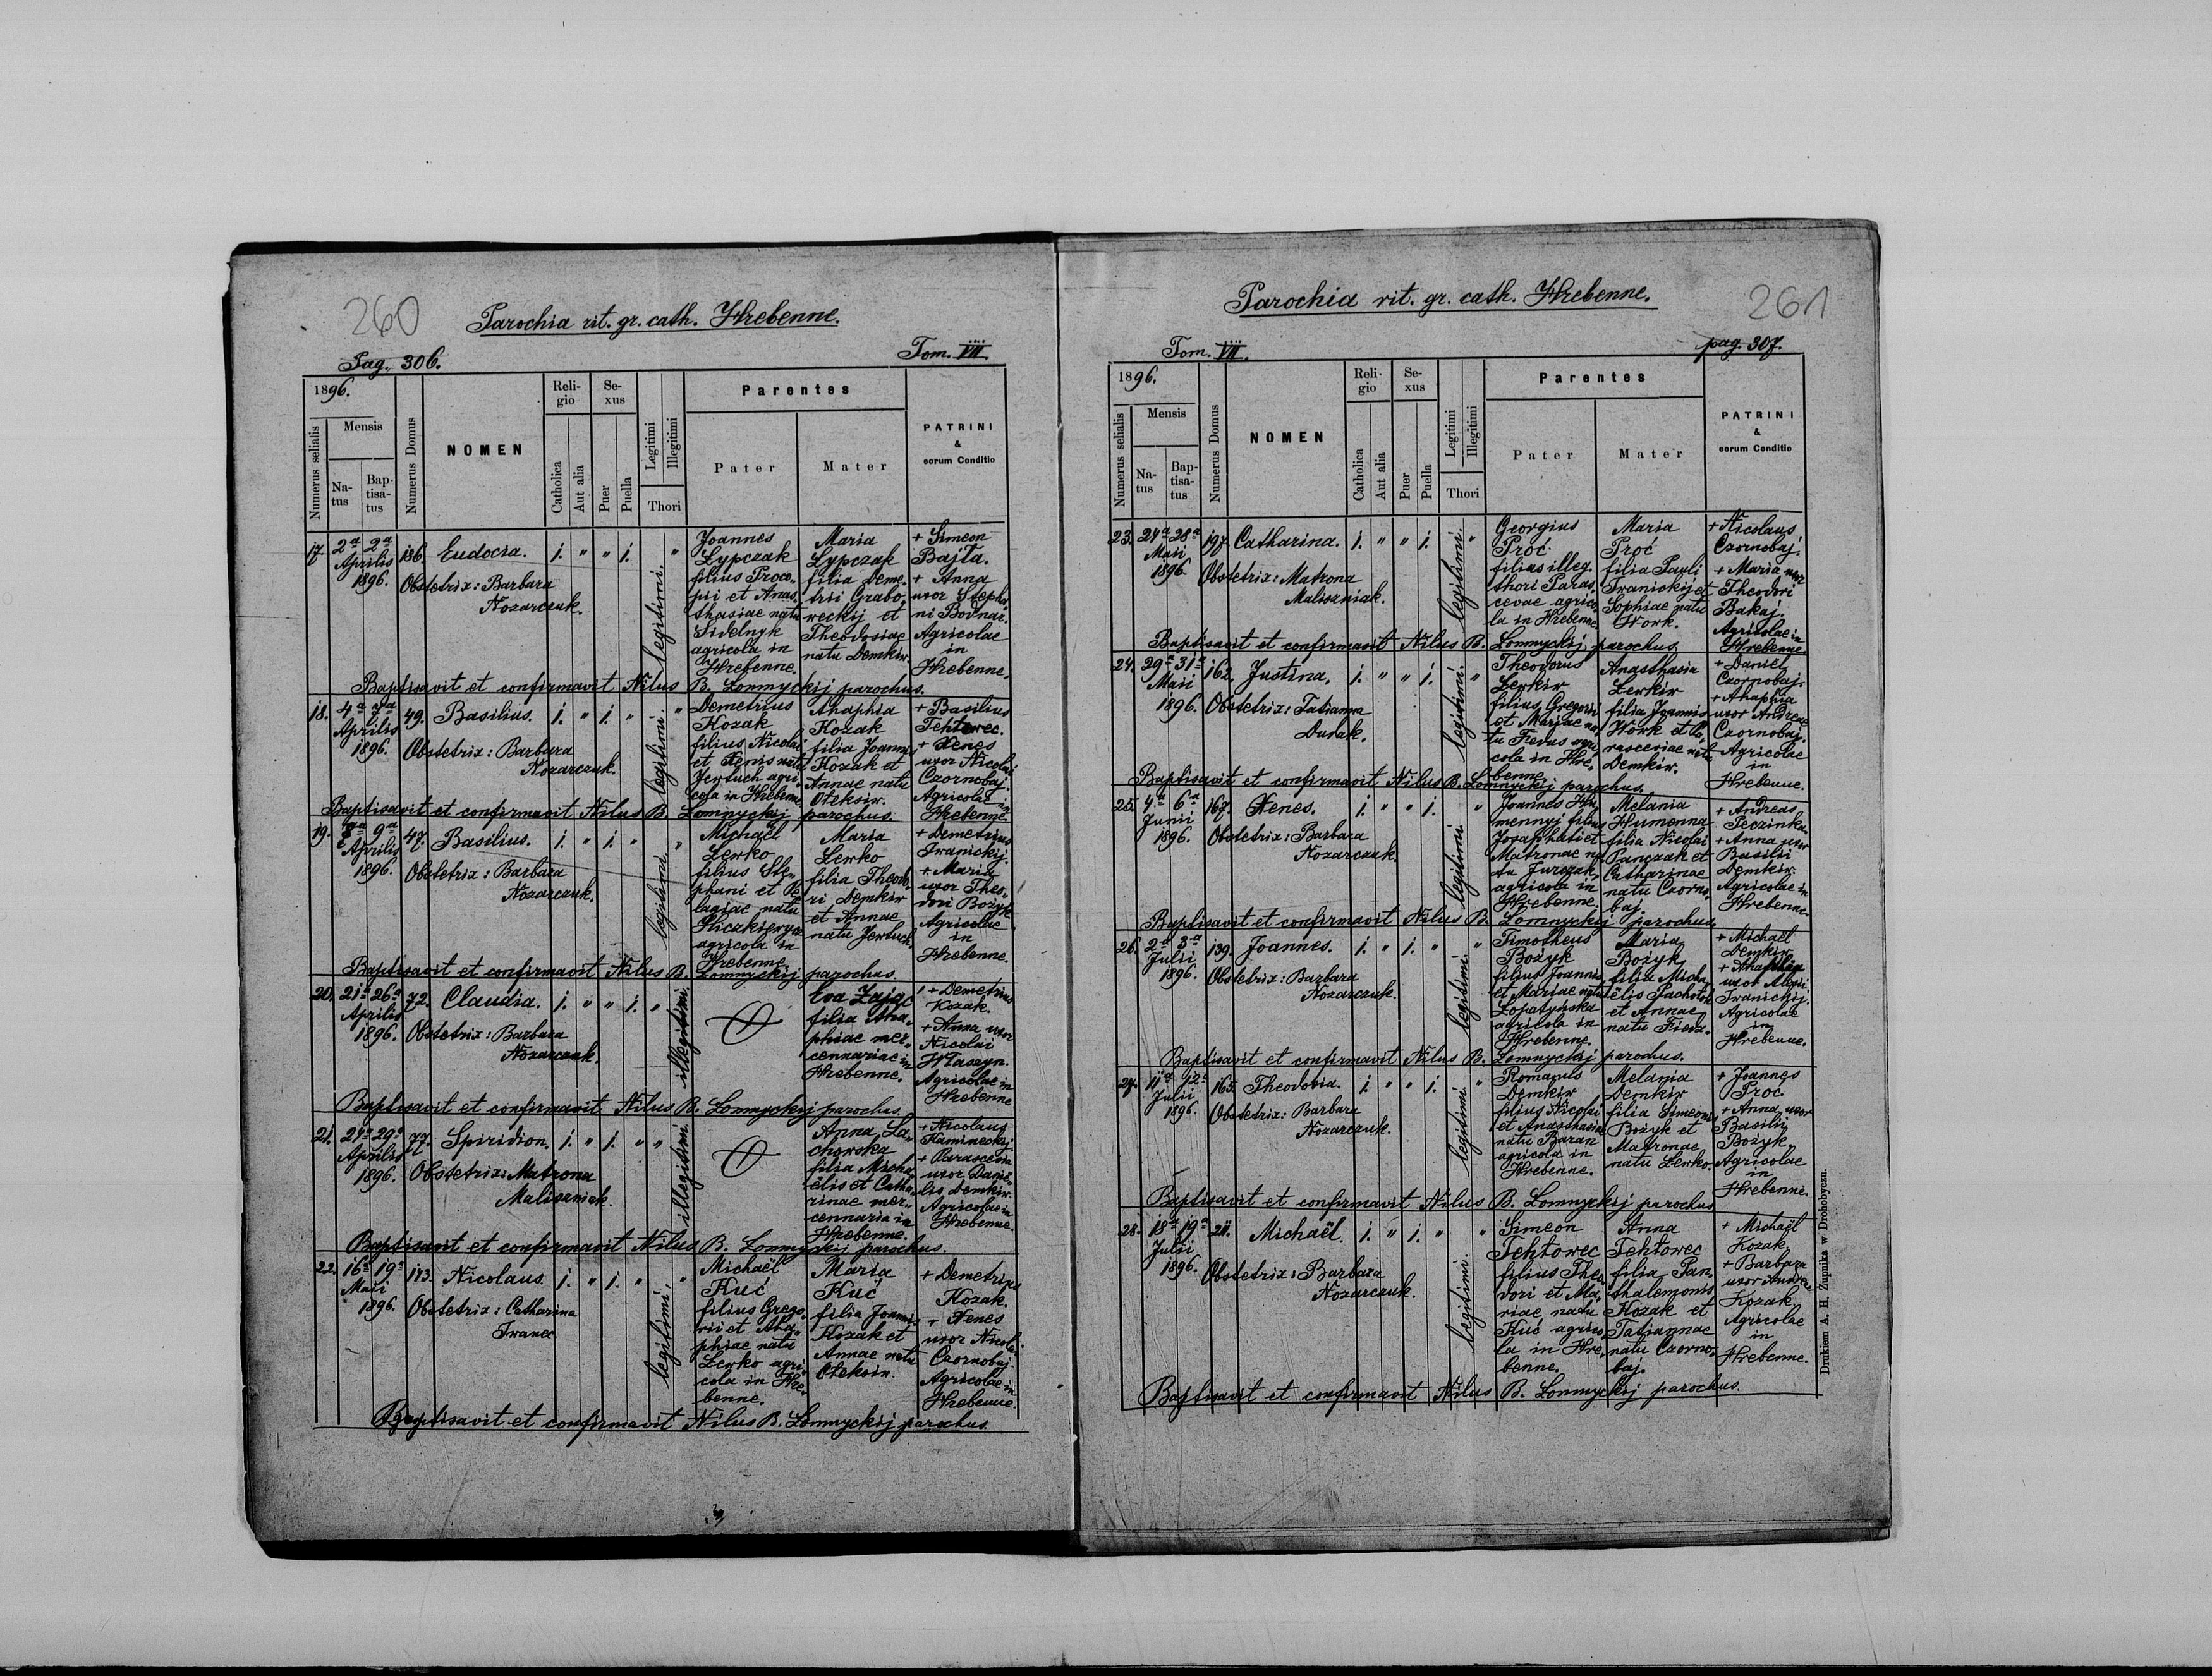 260
Parochia rit. gr. cath. Hrebenne.
Pag. 306.
Tom. VII.
1896.
Numerus serialis
Mensis
Natus
Baptisatus
Numerus Domus
NOMEN
Religio
Catholica
Aut alia
Sexus
Puer
Puella
Legitimi
Illegitimi
Thori
Parentes
Pater
Mater
PATRINI
&
eorum Conditio
17. 2ª 2ª Aprilis 1896. 186. Eudocia. 1. " " 1. legitimi. "
Obstetrix: Barbara
Nozarczuk.
Joannes
Lypczak
filius Proco-
pii et Anas-
thasiae natu
Sidelnyk
agricola in
Hrebenne.
Maria
Lypczak
filia Deme-
trii Grabo-
weckij et
Theodosiae
natu Demkiw.
+ Simeon
Bajta.
+ Anna
uxor Stepha-
ni Bodnar.
Agricolae
in
Hrebenne.
Baptisavit et confirmavit Nilus B. Lomnyckij parochus.
18. 4ª 7ª Aprilis 1896. 49. Basilius. 1. " 1. " legitimi. "
Obstetrix: Barbara
Nozarczuk.
Demetrius
Kozak
filius Nicolai
et Xenis natu
Jertuch agri-
cola in Hrebenne.
Ahaphia
Kozak
filia Joannis
Kozak et
Annae natu
Oteksiw.
+ Basilius
Tehtowec.
+ Xenes
uxor Nicolai
Czornobaj.
Agricolae in
Hrebenne.
Baptisavit et confirmavit Nilus B. Lomnyckij parochus.
19. 8ª 9ª Aprilis 1896. 47. Basilius. 1. " 1. " legitimi. "
Obstetrix: Barbara
Nozarczuk.
Michaël
Lewko
filius Ste-
phani et Pe-
lagiae natu
agricola in
Hrebenne.
Maria
Lewko
filia Theodo-
ri Demkiw
et Annae
natu Jertuch.
+ Demetrius
Iwanickij.
+ Maria
uxor Theo-
dori Bożyk
Agricolae
in
Hrebenne.
Baptisavit et confirmavit Nilus B. Lomnyckij parochus.
20. 21ª 26ª Aprilis 1896. 72. Claudia. 1. " " 1. " illegitimi.
Obstetrix: Barbara
Nozarczuk.
Eva Zając
filia Aha-
phiae mer-
cennariae in
Hrebenne.
+ Demetrius
Kozak.
+ Anna uxor
Nicolai
Htaszyn.
Agricolae in
Hrebenne
Baptisavit et confirmavit Nilus B. Lomnyckij parochus.
21. 27ª 29ª Aprilis 1896. 77. Spiridion. 1. " 1. " " illegitimi.
Obstetrix: Matrona
Maliszniak.
Anna La-
chowska
filia Micha-
ëlis et Catha-
rinae mer-
cennaria in
Hrebenne.
+ Nicolaus
Kamineckij
+ Parascevia
uxor Danie-
lis Demkiw.
Agricolae in
Hrebenne.
Baptisavit et confirmavit Nilus B. Lomnyckij parochus.
22. 16ª 19ª Maii 1896. 173. Nicolaus. 1. " 1. " legitimi. "
Obstetrix: Catharina
Iwanec
Michaël
Kuć
filius Grego-
rii et Aha-
phiae natu
Lewko agri-
cola in Hre-
benne.
Maria
Kuć
filia Joannis
Kozak et
Annae natu
Oteksiw.
+ Demetrius
Kozak.
+ Xenes
uxor Nicolai
Czornobaj.
Agricolae in
Hrebenne.
Baptisavit et confirmavit Nilus B. Lomnyckij parochus.
261
Parochia rit. gr. cath. Hrebenne.
Tom. VII.
pag. 307.
1896.
Numerus serialis
Mensis
Natus
Baptisatus
Numerus Domus
NOMEN
Religio
Catholica
Aut alia
Sexus
Puer
Puella
Legitimi
Illegitimi
Thori
Parentes
Pater
Mater
PATRINI
&
eorum Conditio
23. 24ª 28ª Maii 1896. 197. Catharina. 1. " " 1. legitimi. "
Obstetrix: Matrona
Maliszniak.
Georgius
Proć
filius illeg.
thori Paras-
cevae agrico-
la in Hrebenne.
Maria
Proć
filia Pauli
Iwanickij et
Sophiae natu
Work.
+ Nicolaus
Czornobaj.
+ Maria uxor
Theodori
Bakaj.
Agricolae in
Hrebenne.
Baptisavit et confirmavit Nilus B. Lomnyckij parochus
24. 29ª 31ª Maii 1896. 162. Justina. 1. " " 1. legitimi. "
Obstetrix: Tatianna
Dudak.
Theodorus
Lewkiw
filius Gregorii
et Mariae na-
tu Fedus agri-
cola in Hre-
benne.
Anasthasia
Lewkiw
filia Joannis
Work et Pa-
rasceviae natu
Demkiw.
+ Daniel
Czornobaj.
+ Ahaphia
uxor Andreae
Czornobaj.
Agricolae
in
Hrebenne.
Baptisavit et confirmavit Nilus B. Lomnyckij parochus.
25. 4ª 6ª Junii 1896. 167. Xenes. 1. " " 1. legitimi "
Obstetrix: Barbara
Nozarczuk.
Joannes Hu-
mennyj filius
Josaphati et
Matronae na-
tu Jurczak
agricola in
Hrebenne.
Melania
Humenna
filia Nicolai
Panczak et
Catharinae
natu Czorno-
baj.
+ Andreas
Peczinka.
+ Anna uxor
Basilii
Demkiw.
Agricolae in
Hrebenne.
Baptisavit et confirmavit Nilus B. Lomnyckij parochus.
26. 2ª 3ª Julii 1896. 139. Joannes. 1. " 1. " legitimi. "
Obstetrix: Barbara
Nozarczuk.
Timotheus
Bożyk
filius Joannis
et Mariae natu
Lopatyńska
agricola in
Hrebenne.
Maria
Bożyk
filia Micha-
ëlis Pachotok
et Annae
natu Fiedz.
+ Michaël
Demkiw.
+ Ahaphia
uxor Alexii
Iwanickij.
Agricolae
in
Hrebenne.
Baptisavit et confirmavit Nilus B. Lomnyckij parochus.
27. 11ª 12ª Julii 1896. 165. Theodosia. 1. " " 1. legitimi. "
Obstetrix: Barbara
Nozarczuk.
Romanus
Demkiw
filius Nicolai
et Anasthasiae
natu Baran
agricola in
Hrebenne.
Melania
Demkiw
filia Simeonis
Bożyk et
Matronae
natu Lewko.
+ Joannes
Proc.
+ Anna uxor
Basilii
Bożyk.
Agricolae
in
Hrebenne.
Baptisavit et confirmavit Nilus B. Lomnyckij parochus
28. 18ª 19ª Julii 1896. 211. Michaël. 1. " 1. " legitimi. "
Obstetrix: Barbara
Nozarczuk.
Simeon
Tehtowec
filius Theo-
dori et Ma-
riae natu
Kuć agrico-
la in Hre-
benne.
Anna
Tehtowec
filia Pan-
thalemonis
Kozak et
Tatiannae
natu Czorno-
baj.
+ Michaël
Kozak
+ Barbara
uxor Andreae
Kozak
Agricolae
in
Hrebenne.
Baptisavit et confirmavit Nilus B. Lomnyckij parochus.
Drukiem A. H. Żupnika w Drohobyczu.